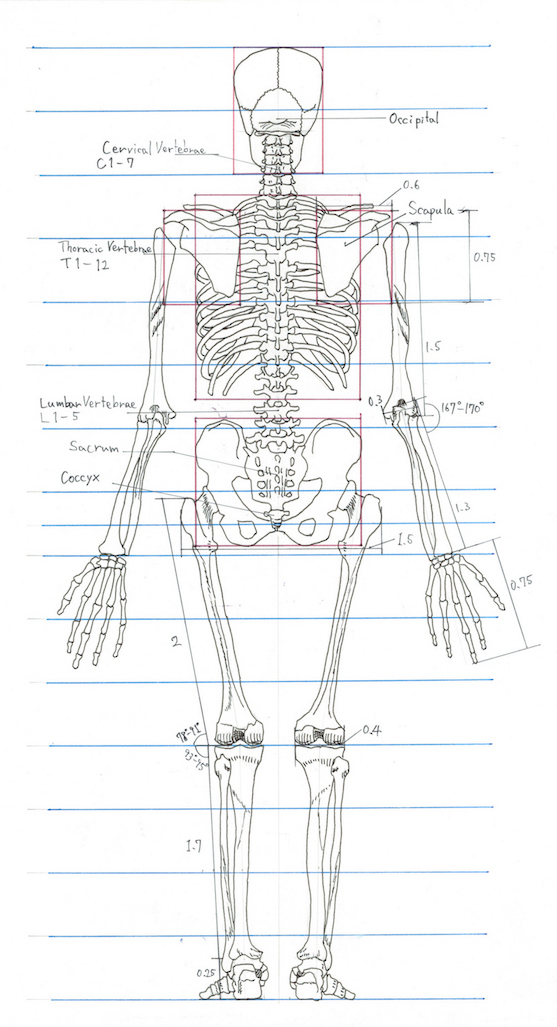 Occipital
Cervical Vertebrae
C1-7
0.6
Scapula
Thoracic Vertebrae
T1-12
0.75
1.5
Lumbar Vertebrae
L1-5
0.3
167°-170°
Sacrum
Coccyx
1.3
1.5
0.75
2
0.4
93°-95°
1.7
0.25